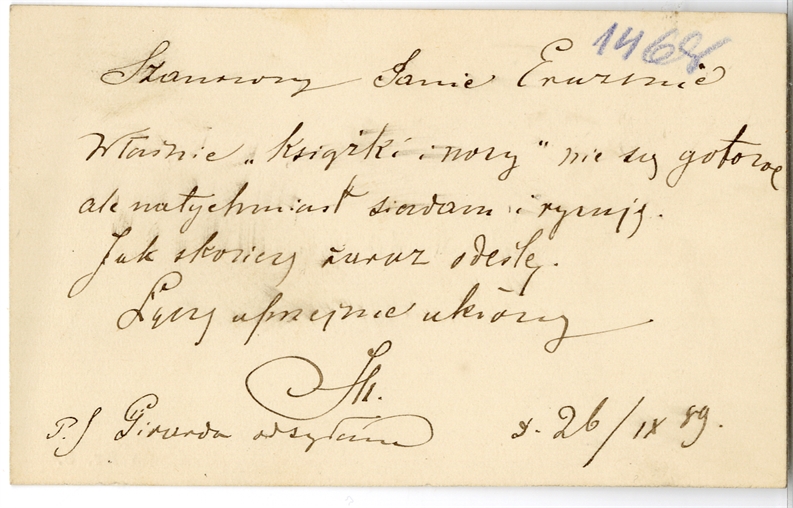 1468
Szanowny Panie Erazmie
Właśnie „Książki i nosy" nie są gotowe
ale natychmiast siadam i rysuję.
Jak skończę zaraz odeślę.
Łączę uprzejme ukłony
P.S Girarda odsyłam
d. 26/IX 89.